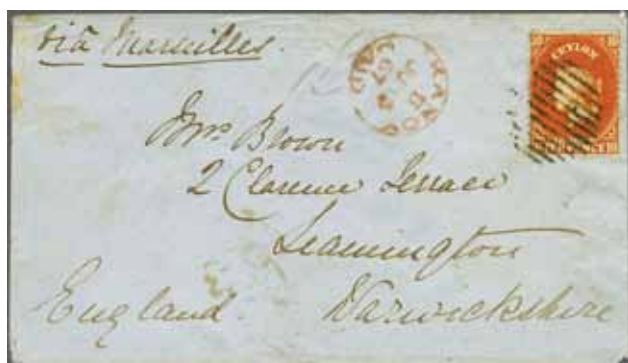 via Marseilles.
CEYLON
10 10
KANDY
PAID
Mrs. Brown
2 Clarence Terrace
Leamington
England.
Warwickshire